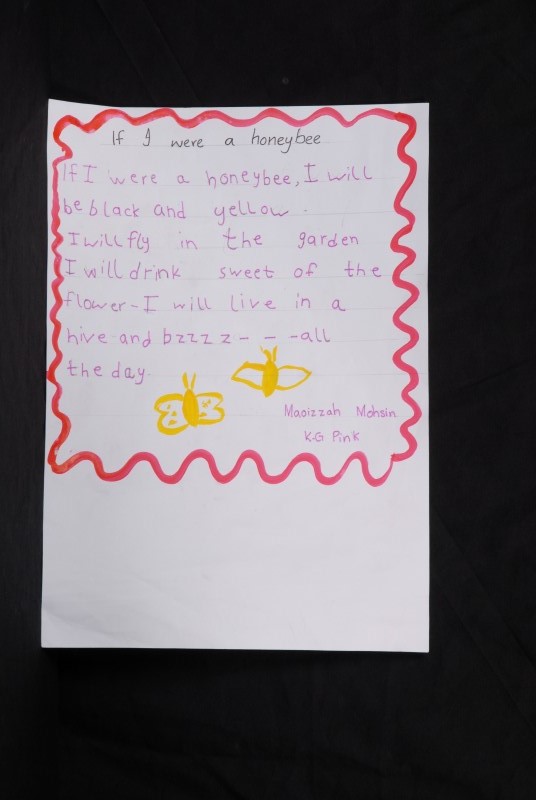 If I were a honeybee
If I were a honeybee, I will
be black and yellow.
I will fly in the garden
I will drink sweet of the
flower-I will live in a
hive and bzzzz- - -all
the day.
Maoizzah Mohsin
K-G Pink